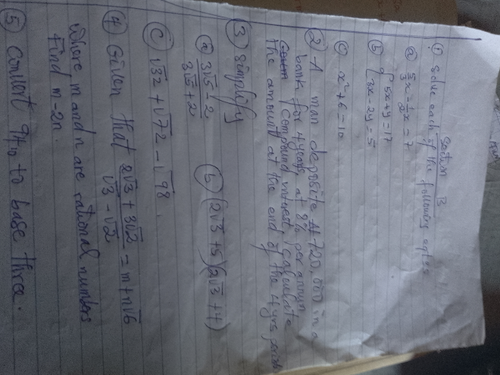 Section B
① Solve each of the following eqtns
ⓐ 5/3x - 1/2x = 7
ⓑ { 5x + y = 17
2x - 2y = 5
ⓒ x² + 6 = 10
② A man deposits ₦ 120,000 in a
bank for 4 years, at 8% per annum
Compound interest, calculate
the amount at the end of the 4 yrs
③ Simplify
ⓐ 3√5 - 2 / 3√5 + 2 ⓑ (2√3 + 5)(2√3 + 4)
ⓒ √32 + √72 - √98.
④ Given that 2√3 + 3√2 / √3 - √2 = m + n√6
where m and n are rational numbers
Find m - 2n.
⑤ Convert 97₁₀ to base three.